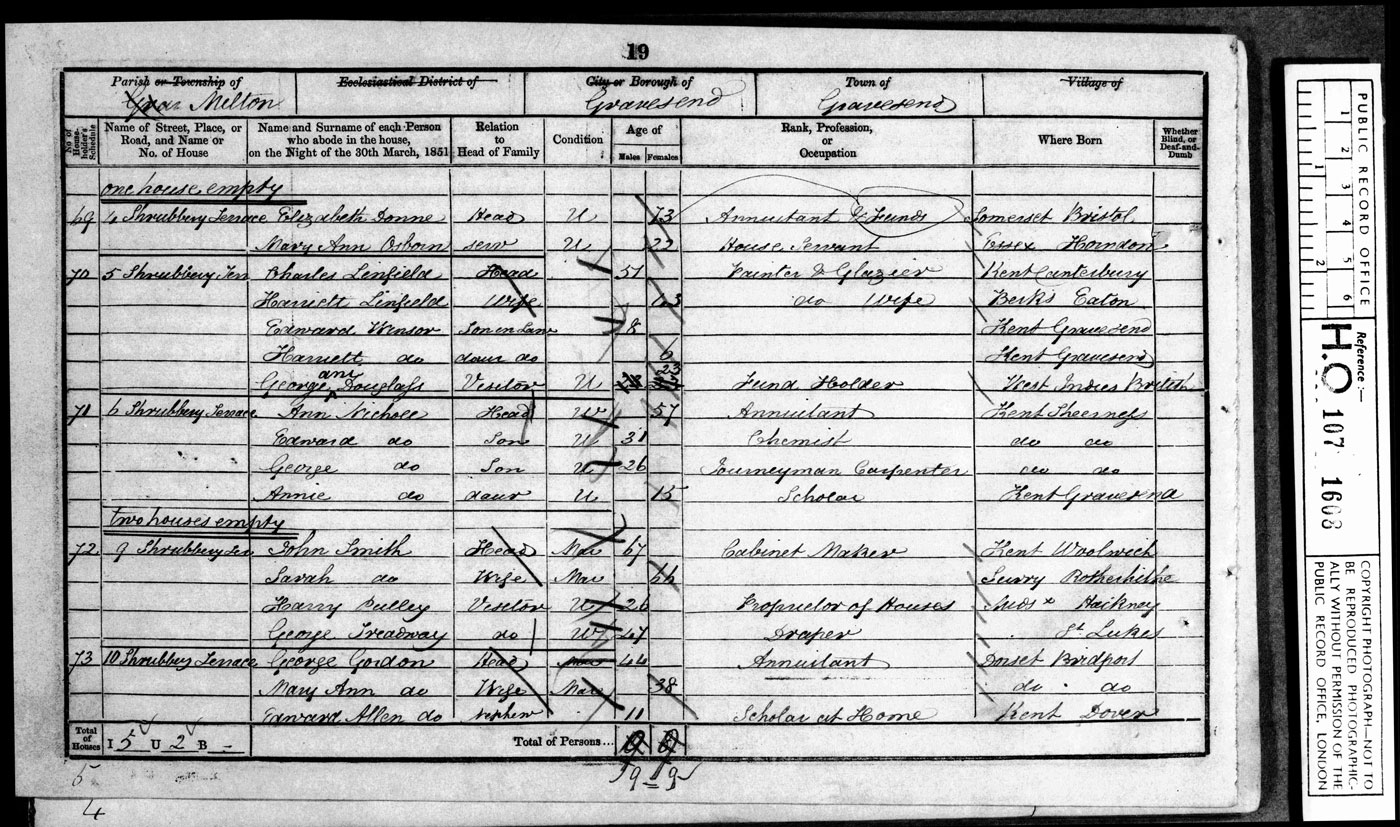 19
Parish or Township of Ecclesiastical District of City or Borough of Town of Village of
Milton Gravesend Gravesend
No of House-holder's Schedule Name of Street, Place, or Road, and Name or No. of House Name and Surname of each Person who abode in the house, on the Night of the 30th March, 1851 Relation to Head of Family Condition Age of Males Females Rank, Profession, or Occupation Where Born Whether Blind, or Deaf-and-Dumb
one house empty
69 4 Shrubbery Terrace Elizabeth Donne Head U 73 Annuitant & Funds Somerset Bristol
Mary Ann Osborn serv U 22 House Servant Essex Horndon
70 5 Shrubbery Ter Charles Linfield Head 51 Painter & Glazier Kent Canterbury
Harriett Linfield Wife do Wife Berks Eaton
Edward Winsor Son in Law 8 Kent Gravesend
Harriett do daur do 6 Kent Gravesend
George ann Douglass Visitor U 23 Fund Holder West Indies British
71 6 Shrubbery Terrace Ann Nicholl Head W 57 Annuitant Kent Sheerness
Edward do Son U 31 Chemist do do
George do Son U 26 Journeyman Carpenter do do
Annie do daur U 15 Scholar Kent Gravesend
two houses empty
72 9 Shrubbery Ter John Smith Head Mar 67 Cabinet Maker Kent Woolwich
Sarah do Wife Mar 66 Surry Rotherhithe
Harry Pulley Visitor U 26 Proprietor of Houses Midsx Hackney
George Treadway do W 47 Draper St Lukes
73 10 Shrubbery Terrace George Gordon Head Mar 44 Annuitant Dorset Bridport
Mary Ann do Wife Mar 38 do do
Edward Allen do nephew 11 Scholar at Home Kent Dover
Total of Houses I 5 U 2 B - Total of Persons...
9 9
5
4
PUBLIC RECORD OFFICE
1 2 3 4 5 6
1 2
Reference:-
H.O 107 1608
COPYRIGHT PHOTOGRAPH—NOT TO BE REPRODUCED PHOTOGRAPHICALLY WITHOUT PERMISSION OF THE PUBLIC RECORD OFFICE, LONDON